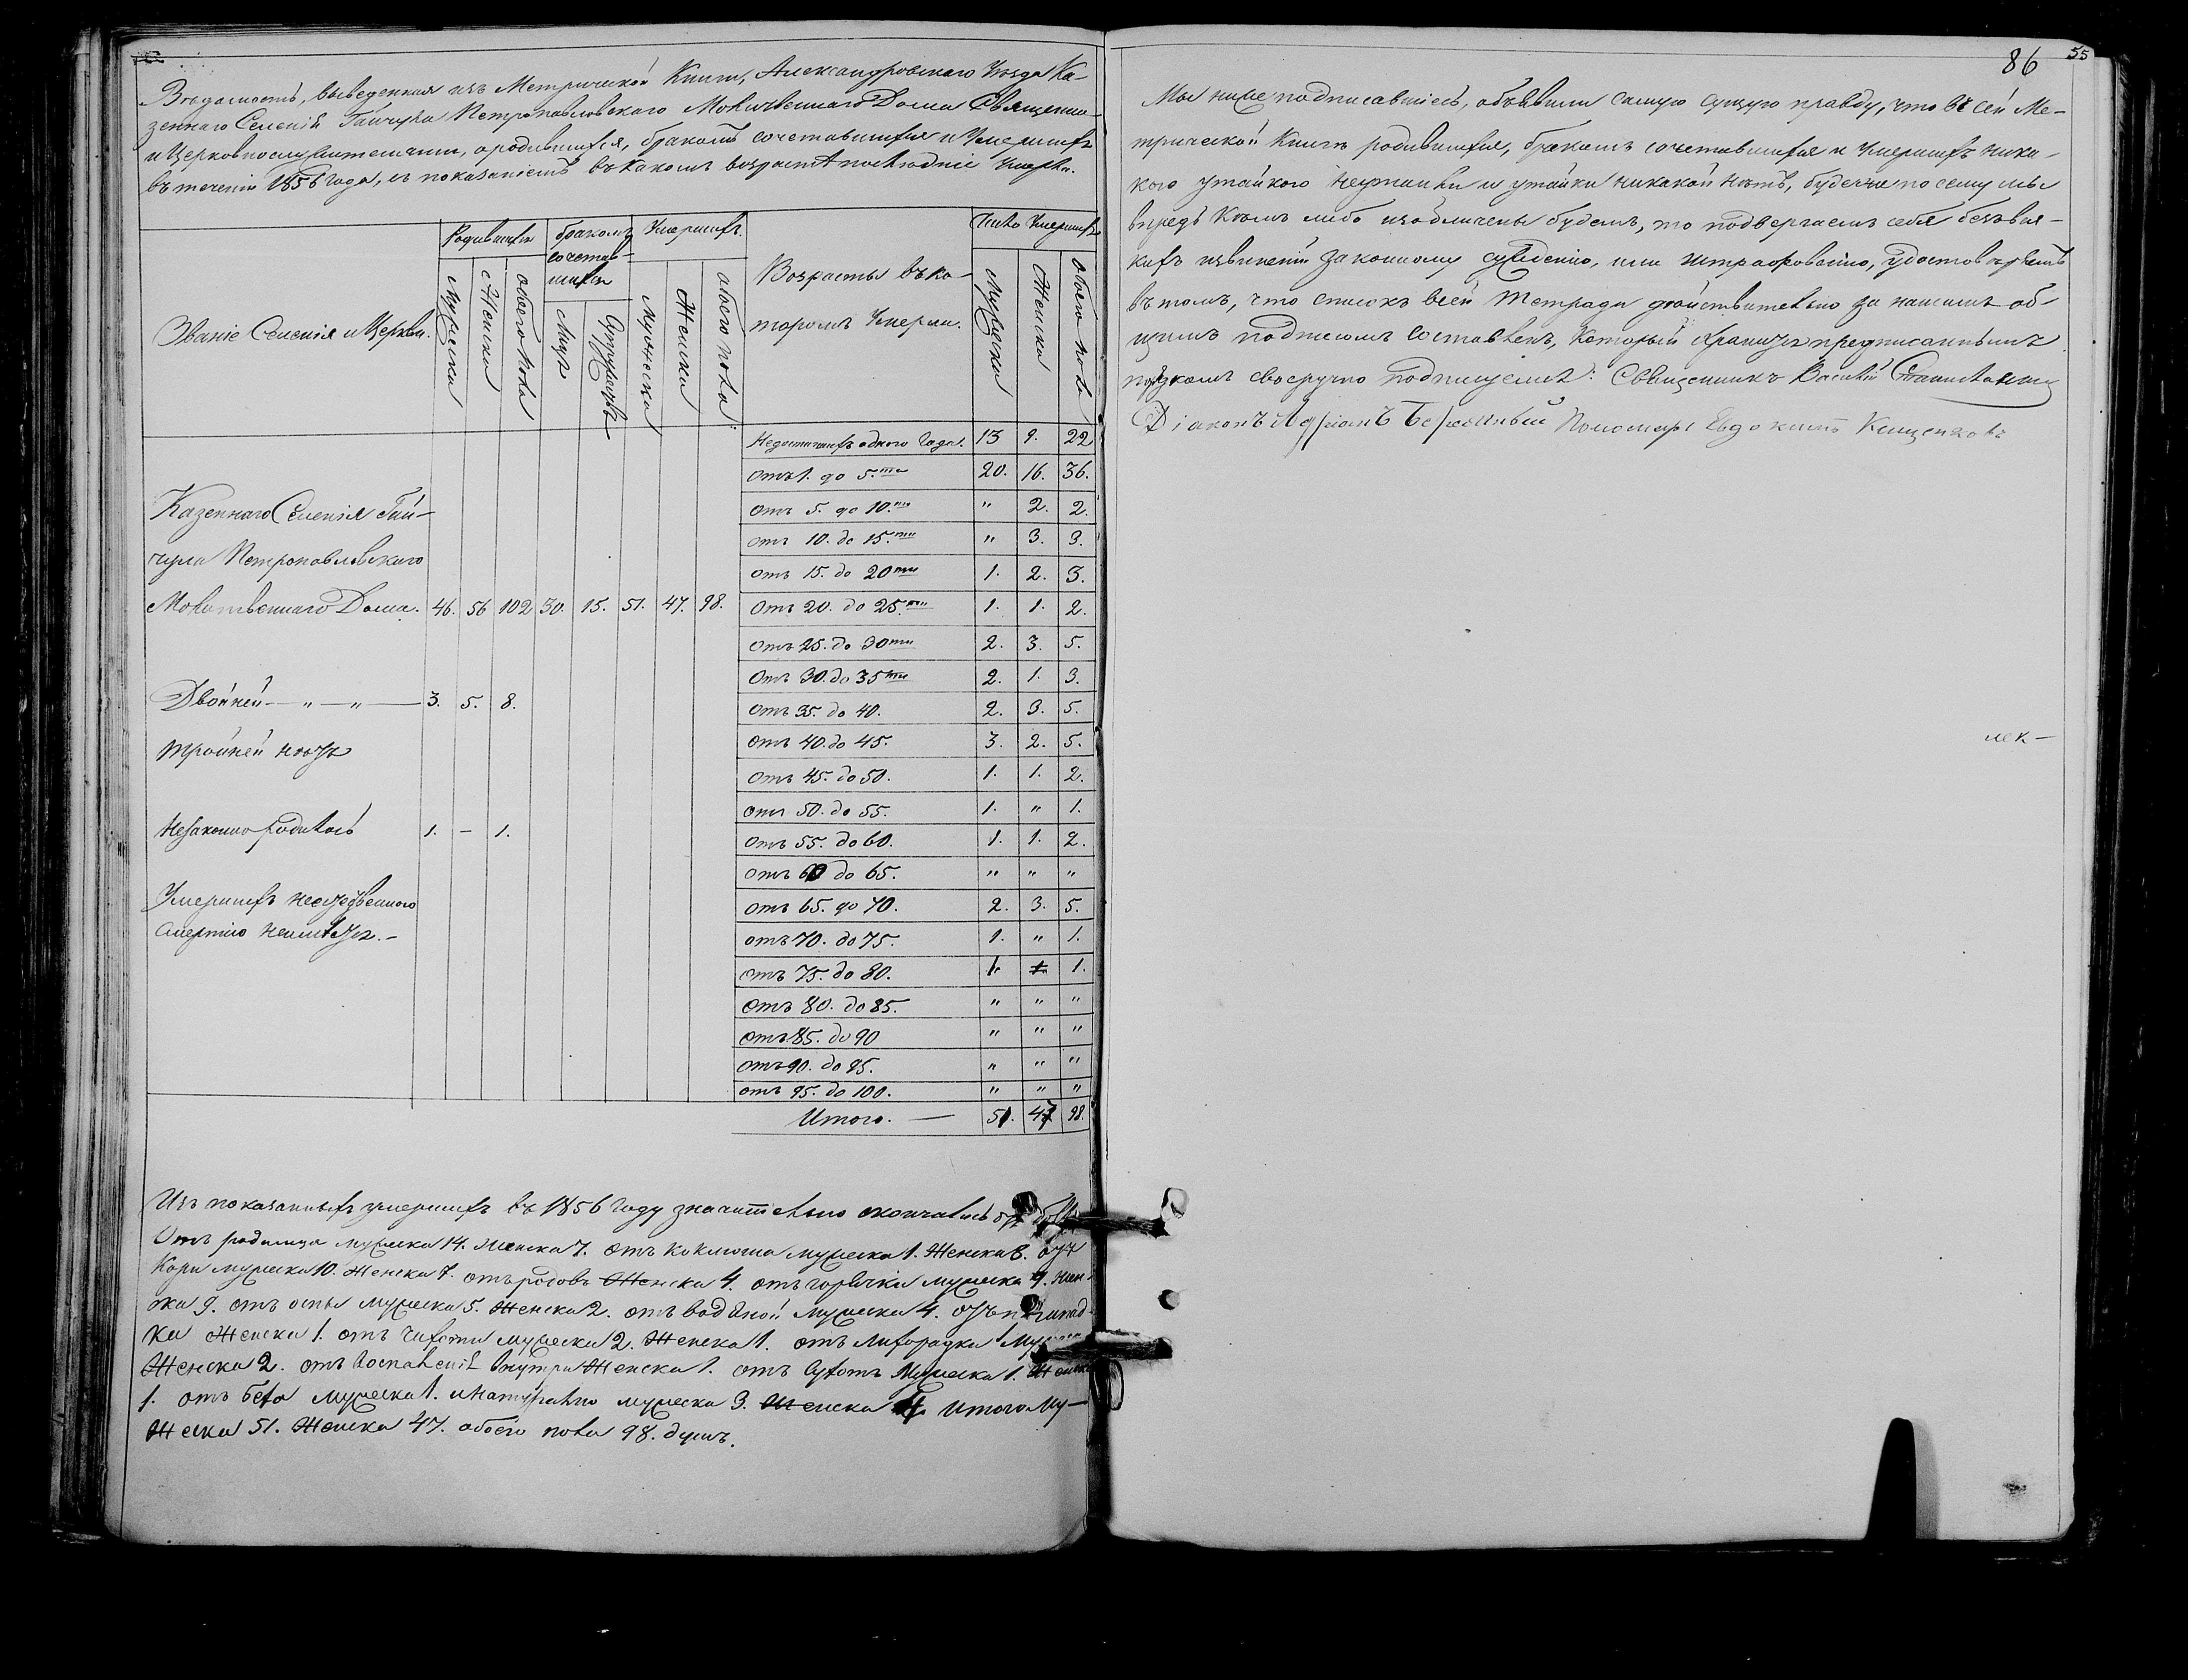 Вѣдомость, выведенная изъ Метрической Книги, Александровскаго Уѣзда Ка-
зеннаго Селенія Гайчула Петропавловскаго Молитвеннаго Дома Священно-
и Церковнослужителями, о родившихся, бракомъ сочетавшихся и Умершихъ
въ теченіи 1856 года, съ показаніемъ въ какомъ возрастѣ послѣдніе умерли.
Званіе Селенія и Церкви.
Родившихся
Мужеска
Женска
Обоего пола
бракомъ сочетав-
шихся
Лицъ
Супружествъ
Умершихъ
Мужеска
Женска
обоего пола
Возрасты въ ко-
торомъ Умерли.
Число Умершихъ
Мужеска
Женска
обоего пола
Недостигшихъ одного Года. 13 9. 22
Отъ 1. до 5.ти 20. 16. 36.
Отъ 5. до 10.ти " 2. 2.
отъ 10. до 15.ти " 3. 3.
отъ 15. до 20ти 1. 2. 3.
Отъ 20. до 25.ти 1. 1. 2.
Отъ 25. до 30ти 2. 3. 5.
Отъ 30. до 35ти 2. 1. 3.
Отъ 35. до 40. 2. 3. 5.
отъ 40. до 45. 3. 2. 5.
Отъ 45. до 50. 1. 1. 2.
отъ 50. до 55. 1. " 1.
Отъ 55. до 60. 1. 1. 2.
отъ 60 до 65. " " "
отъ 65. до 70. 2. 3. 5.
отъ 70. до 75. 1. " 1.
отъ 75. до 80. 1. 1.
отъ 80. до 85. " " "
отъ 85. до 90 " " "
отъ 90. до 95. " " "
отъ 95. до 100. " " "
Итого. — 51. 47 98.
Казеннаго Селенія Гай-
чула Петропавловскаго
Молитвеннаго Дома. 46. 56 102 30. 15. 51. 47. 98.
Двойней — " — " — 3. 5. 8.
тройней нѣтъ
Незаконно родилось 1. — 1.
Умершихъ
смертію
Изъ показанныхъ умершихъ въ 1856 году значительно скончались отъ
Отъ родимца мужеска 14. женска 7. отъ коклюша мужеска 1. Женска 8. отъ
Кори мужеска 10. Женска 7. отъ родовъ Женска 4. отъ горячки мужеска 9. жен-
ска 9. отъ оспы мужеска 5. Женска 2. отъ водяной мужеска 4. отъ
ки Женска 1. отъ чахотки мужеска 2. Женска 1. отъ лихорадки
Женска 2. отъ воспаленія внутри Женска 1. отъ сухотъ Мужеска 1. Женска
1. отъ мужеска 1. и натурально мужеска 3. Женска 4. итого Му-
жеска 51. Женска 47. обоего пола 98. душъ.
86 55
Мы ниже подписавшіесь, объявили самую сущую правду, что въ сей Ме-
трической Книгѣ родившихся, бракомъ сочетавшихся и умершихъ ника-
кого и утайки никакой нѣтъ, буде же по сему мы
впредь кѣмъ либо изобличены будемъ, то подвергаемъ себя безъ вся-
кихъ извиненій законному сужденію, или штрафованію, удостовѣряемъ
въ томъ, что списокъ всей тетради дѣйствительно за нашимъ об-
щимъ подписомъ составленъ, который
порядкомъ своеручно подписуемся: Священникъ Василій
Діаконъ Адріанъ Пономарь Евдокимъ
лек—